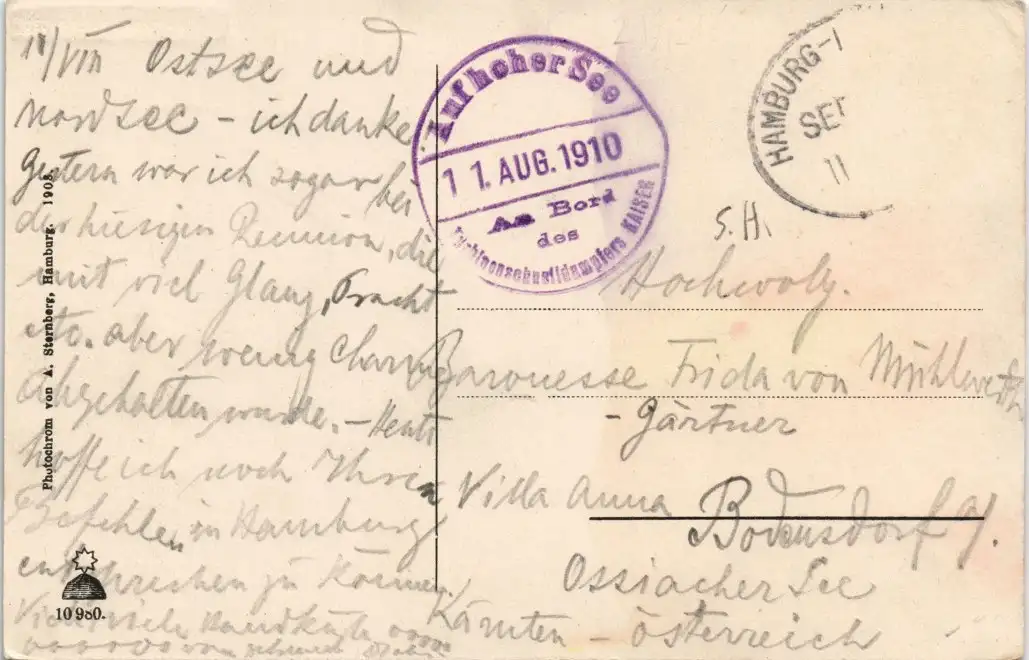 11/VIII Ostsee und
Nordsee – ich danke
Gestern war ich sogar bei
der hiesigen Reunion, die
mit viel Glanz, Pracht
etc. aber wenig Charme
abgehalten wurde. – Heute
hoffe ich noch Ihren
Befehlen in Hamburg
entsprechen zu können.
Handküsse
Photochrom von A. Sternberg, Hamburg. 1908.
10 980.
Auf hoher See
11. AUG. 1910
An Bord
des
Turbinenschnelldampfers KAISER
HAMBURG-1
SE
11
S.H.
Hochwolg.
Baronesse Frida von Mühlwerth
- Gärtner
Villa Anna Bodensdorf a/.
Ossiacher See
Kärnten – Österreich